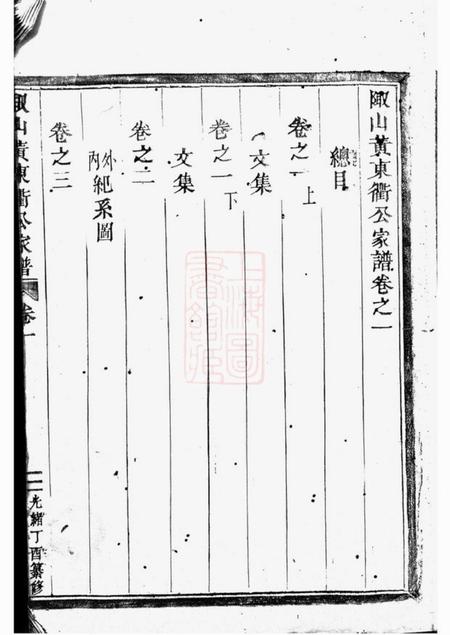 陬山黃東衢公家譜卷之一
總目
卷之一上
文集
卷之一下
文集
卷之二
外內紀系圖
卷之三
陬山黃東衢公家譜
卷一
光緒丁酉纂修